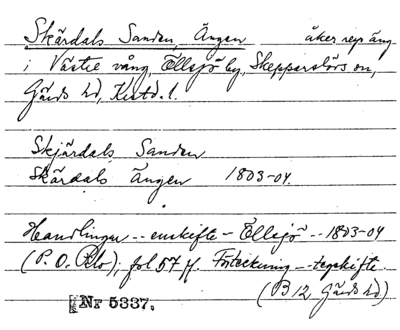 Skärdals Sanden, Ängen åker resp äng
i Västre vång, Ellesjö by, Skepparslövs sn,
Gärds hd, Krist. l.
Skjärdals Sanden
Skärdals Ängen 1803-04.
Handlingar -- enskifte - Ellesjö -- 1803-04
(P. O. ), fol 57 ff. Förteckning -- tegskifte.
(B 12, Gärds hd)
Nr 5337.